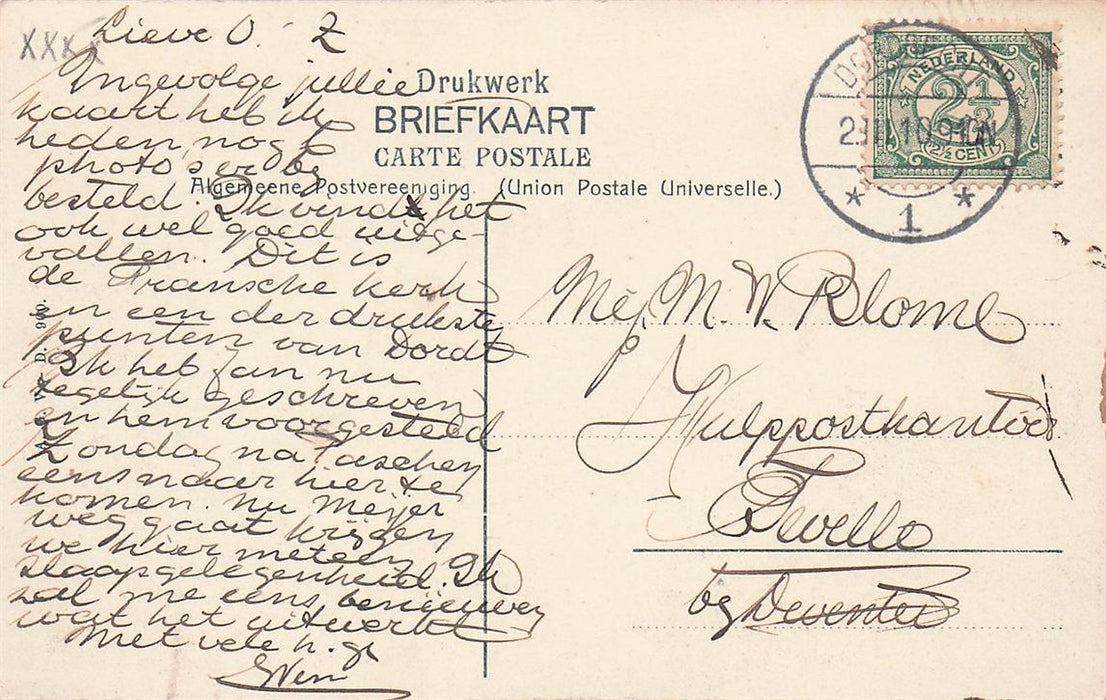 XXX
Lieve O. Z
Ingevolge jullie
kaart heb ik
heden nog 6
photo's er bij
besteld. Ik vind het
ook wel goed uitge-
vallen. Dit is
de Fransche kerk
in een der drukste
punten van Dordt
Ik heb Jan nu
tegelijk geschreven
en hem voorgesteld
Zondag na Paschen
eens naar hier te
komen. Nu Meijer
weg gaat krijgen
we hier meteen
slaapgelegenheid. Ik
zal me eens benieuwen
wat het uitwerkt
Met vele h. gr
Wim
Drukwerk
BRIEFKAART
CARTE POSTALE
Algemeene Postvereeniging (Union Postale Universelle.)
NEDERLAND
2½
(2½ CENT)
1
Mej. M. W. Blome
Hulppostkantoor
Twello
bij Deventer